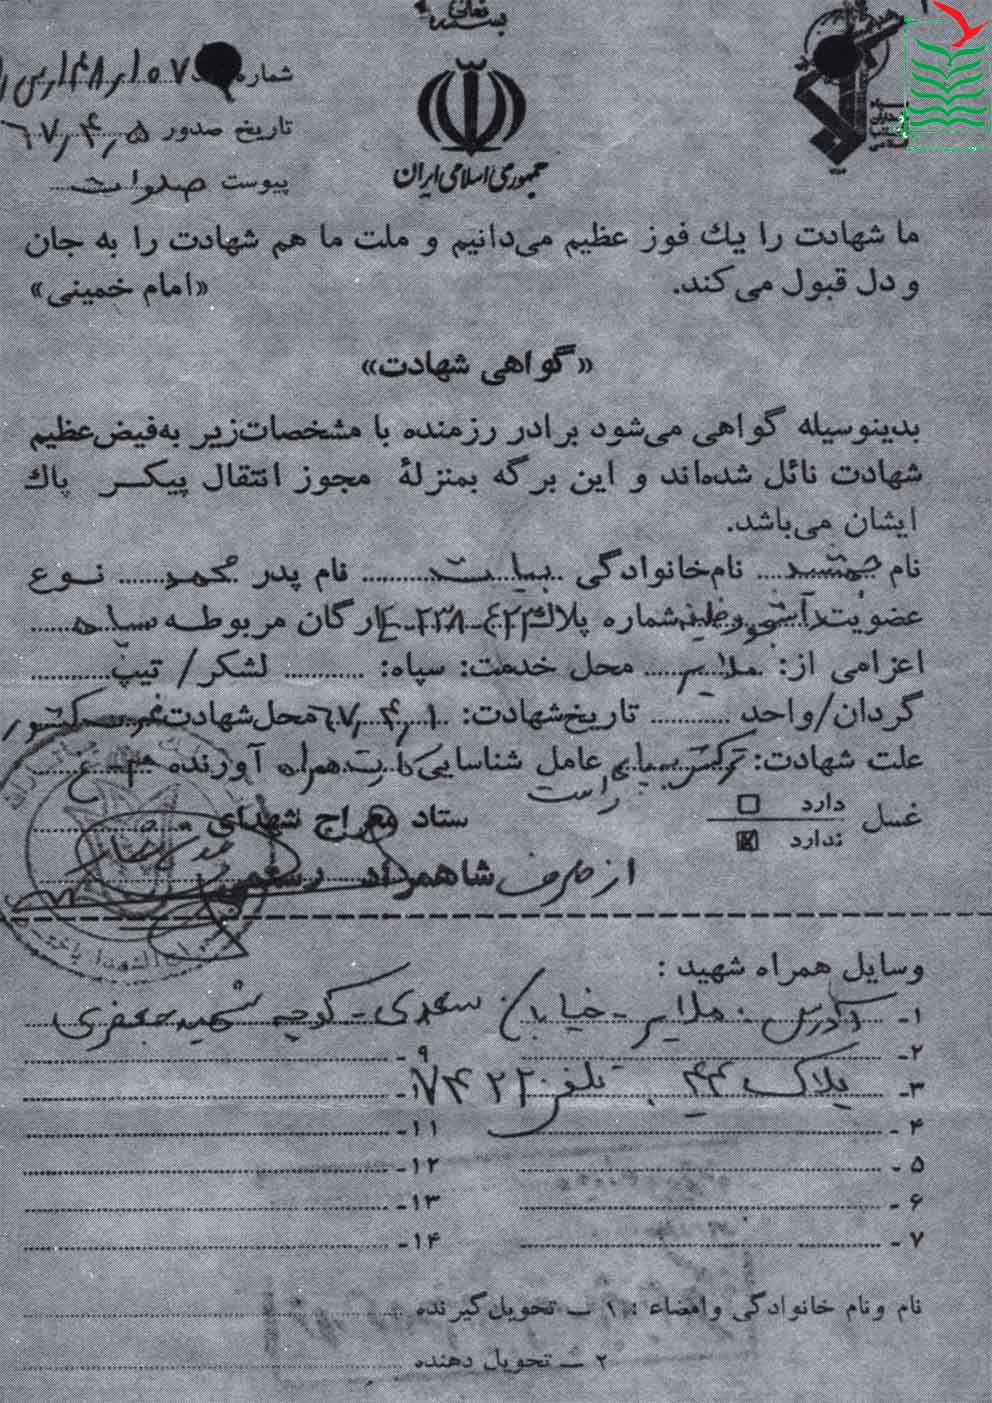 بسمه تعالی
جمهوری اسلامی ایران
شماره
تاریخ صدور ۶۷٫۴٫۵
پیوست
ما شهادت را یك فوز عظیم می‌دانیم و ملت ما هم شهادت را به جان
و دل قبول می‌کند. «امام خمینی»
«گواهی شهادت»
بدینوسیله گواهی می‌شود برادر رزمنده با مشخصات زیر به فیض عظیم
شهادت نائل شده‌اند و این برگه بمنزلهٔ مجوز انتقال پیکــر پاك
ایشان می‌باشد.
نام جمشید نام‌خانوادگی بیات نام پدر محمد نــوع
عضویت وظیفه شماره پلاك ارگان مربوطــه سپاه
اعزامی از: ملایر محل خدمت: سپاه: لشکر/ تیپ
گردان/واحد تاریخ شهادت: ۶۷٫۴٫۱ محل شهادت غرب کشور
علت شهادت: ترکش عامل شناسایی کارت همراه آورنده
غسل دارد
ندارد
راست
ستاد معراج شهدای
از طرف شاهمراد رستمی
وسایل همراه شهید :
۱- آدرس : ملایر - خیابان سعدی - کوچه شهید جعفری
۲- ۹-
۳- پلاک ۴۴ تلفن
۴- ۱۱-
۵- ۱۲-
۶- ۱۳-
۷- ۱۴-
نام ونام خانوادگی وامضاء : ۱ – تحویل‌گیرنده
۲ – تحویل دهنده